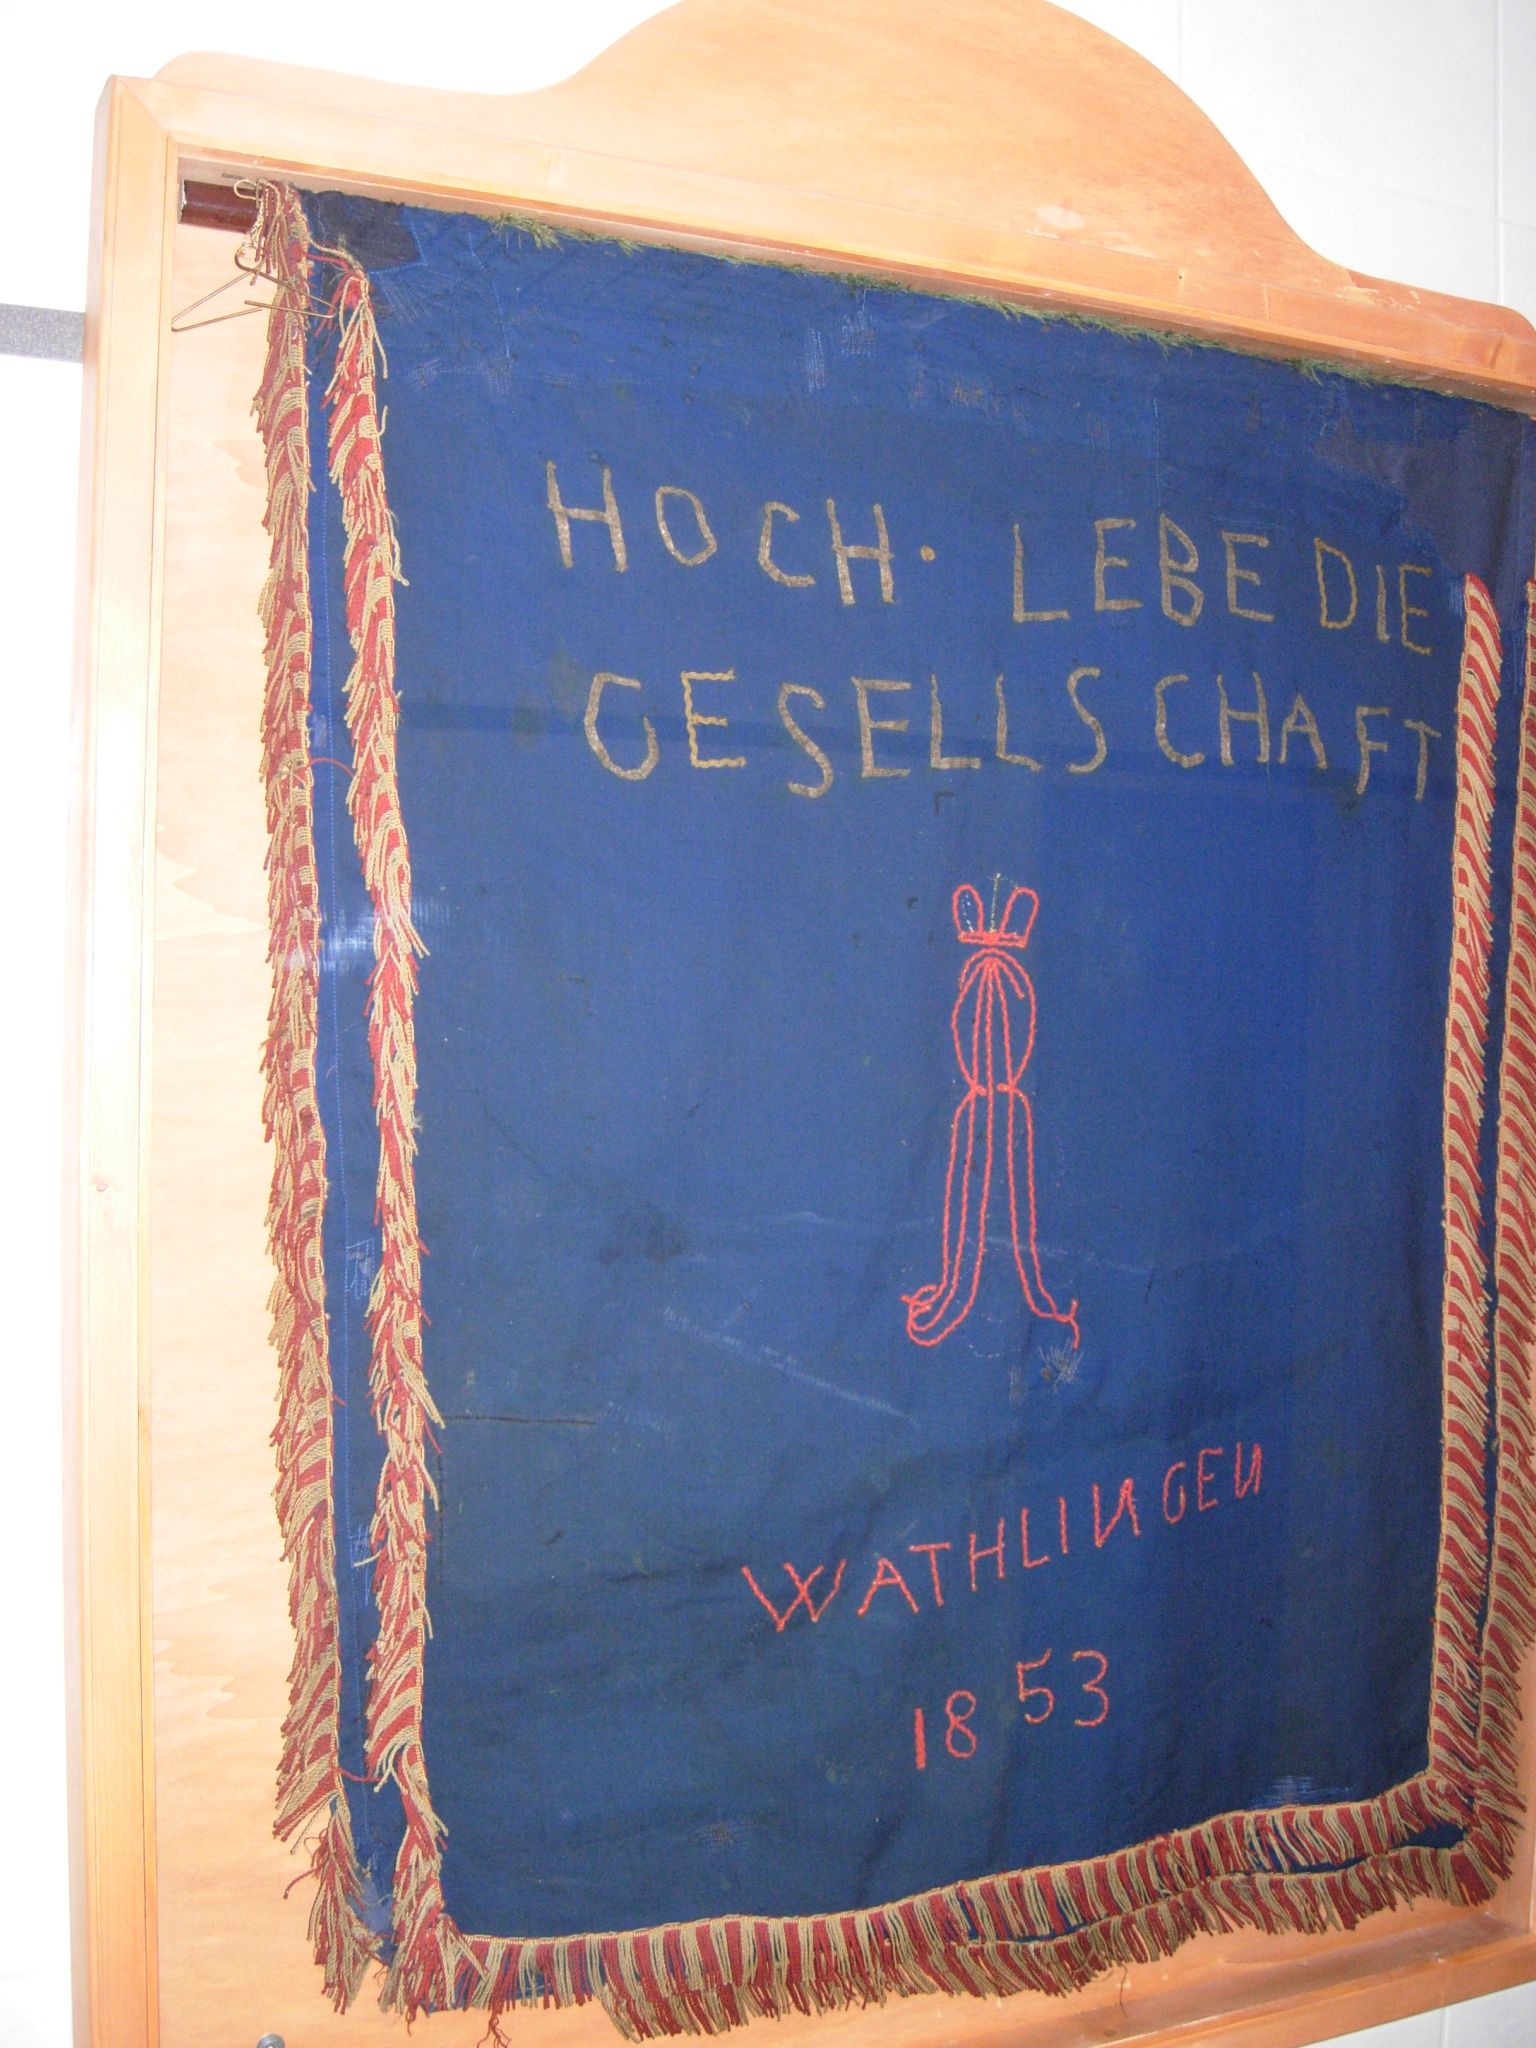 HOCH · LEBE DIE
GESELLSCHAFT
WATHLINGEN
1853